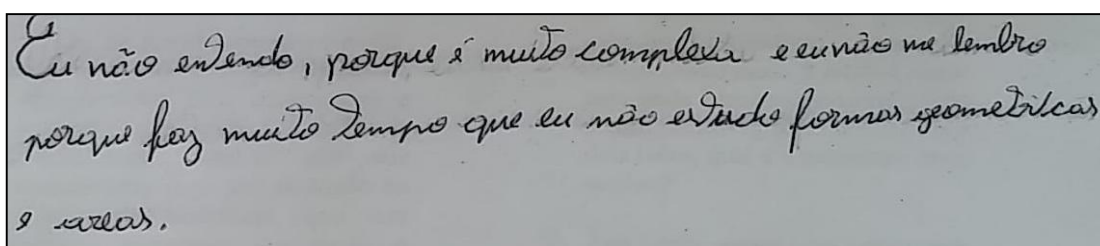 Eu não entendo, porque é muito complexa e eu não me lembro
porque faz muito tempo que eu não estudo formas geometricas
e areas.